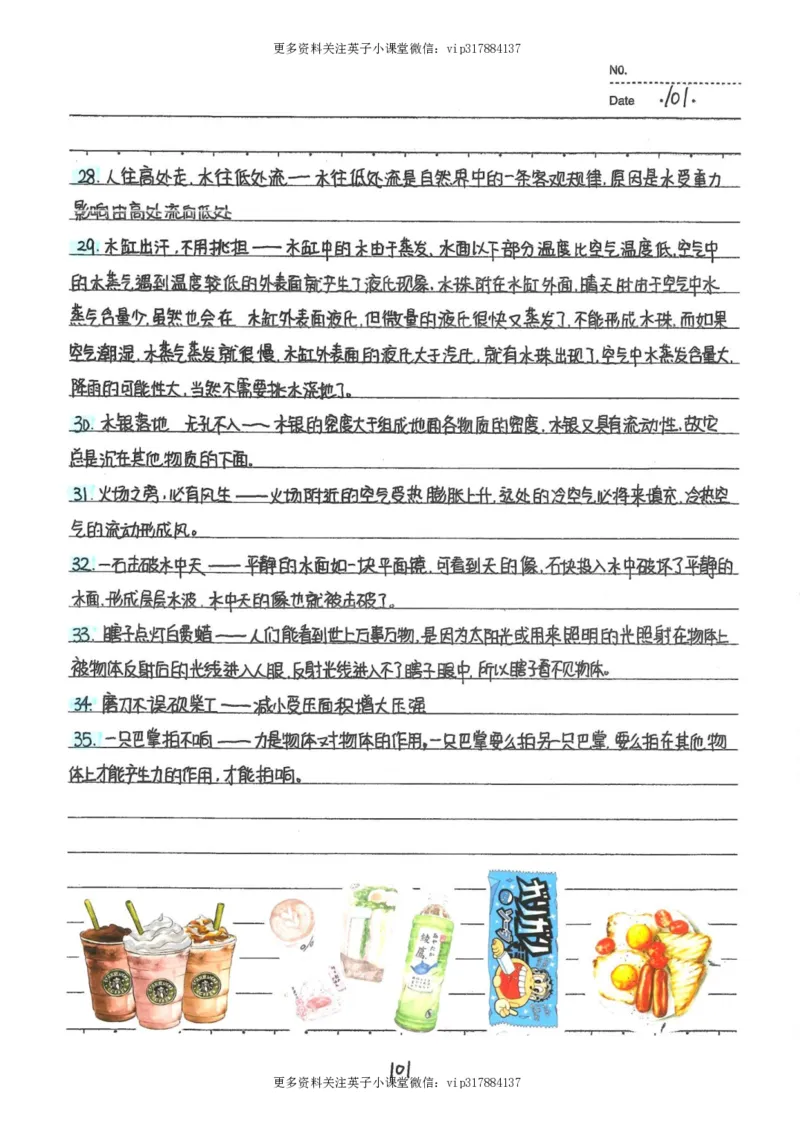 更多资料关注英子小课堂微信：vip317884137
NO.
Date ·101·
28.人往高处走,水往低处流——水往低处流是自然界中的一条客观规律,原因是水受重力
影响由高处流向低处
29.水缸出汗,不用挑担——水缸中的水由于蒸发,水面以下部分温度比空气温度低,空气中
的水蒸气遇到温度较低的外表面就产生了液化现象,水珠附在水缸外面,晴天时由于空气中水
蒸气含量少,虽然也会在 水缸外表面液化,但微量的液化很快又蒸发了,不能形成水珠,而如果
空气潮湿,水蒸气蒸发就很慢,水缸外表面的液化大于汽化,就有水珠出现了,空气中水蒸发含量大,
降雨的可能性大,当然不需要挑水浇地了。
30.水银落地 无孔不入——水银的密度大于组成地面各物质的密度,水银又具有流动性,故它
总是沉在其他物质的下面。
31.火场之旁,必有风生——火场附近的空气受热膨胀上升,远处的冷空气必将来填充,冷热空
气的流动形成风。
32.一石击破水中天——平静的水面如一块平面镜,可看到天的像,石快投入水中破坏了平静的
水面,形成层层水波,水中天的像也就被击破了。
33.瞎子点灯白费蜡——人们能看到世上万事万物,是因为太阳光或用来照明的光照射在物体上
被物体反射后的光线进入人眼,反射光线进入不了瞎子眼中,所以瞎子看不见物体。
34.磨刀不误砍柴工——减小受压面积增大压强
35.一只巴掌拍不响——力是物体对物体的作用,一只巴掌要么拍另一只巴掌,要么拍在其他物
体上才能产生力的作用,才能拍响。
綾鷹
ガリガリ君
ソーダ
101
更多资料关注英子小课堂微信：vip317884137